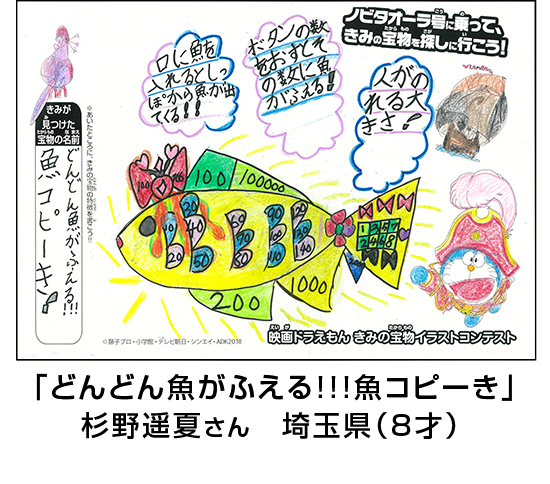 ノビタオーラ号に乗って、
きみの宝物を探しに行こう!
口に魚を
入れるとしっ
ぽから魚が出
てくる!!
ボタンの数
をおすとそ
の数に魚
がふえる!
人がの
れる大
きさ!
きみが
見つけた
宝物の名前
どんどん魚がふえる!!!
魚コピーき!
※あいたところに、きみの宝物の特徴を書こう!!
100
100000
200
1000
©藤子プロ・小学館・テレビ朝日・シンエイ・ADK2018
映画ドラえもん きみの宝物イラストコンテスト
「どんどん魚がふえる!!!魚コピーき」
杉野遥夏さん 埼玉県(8才)